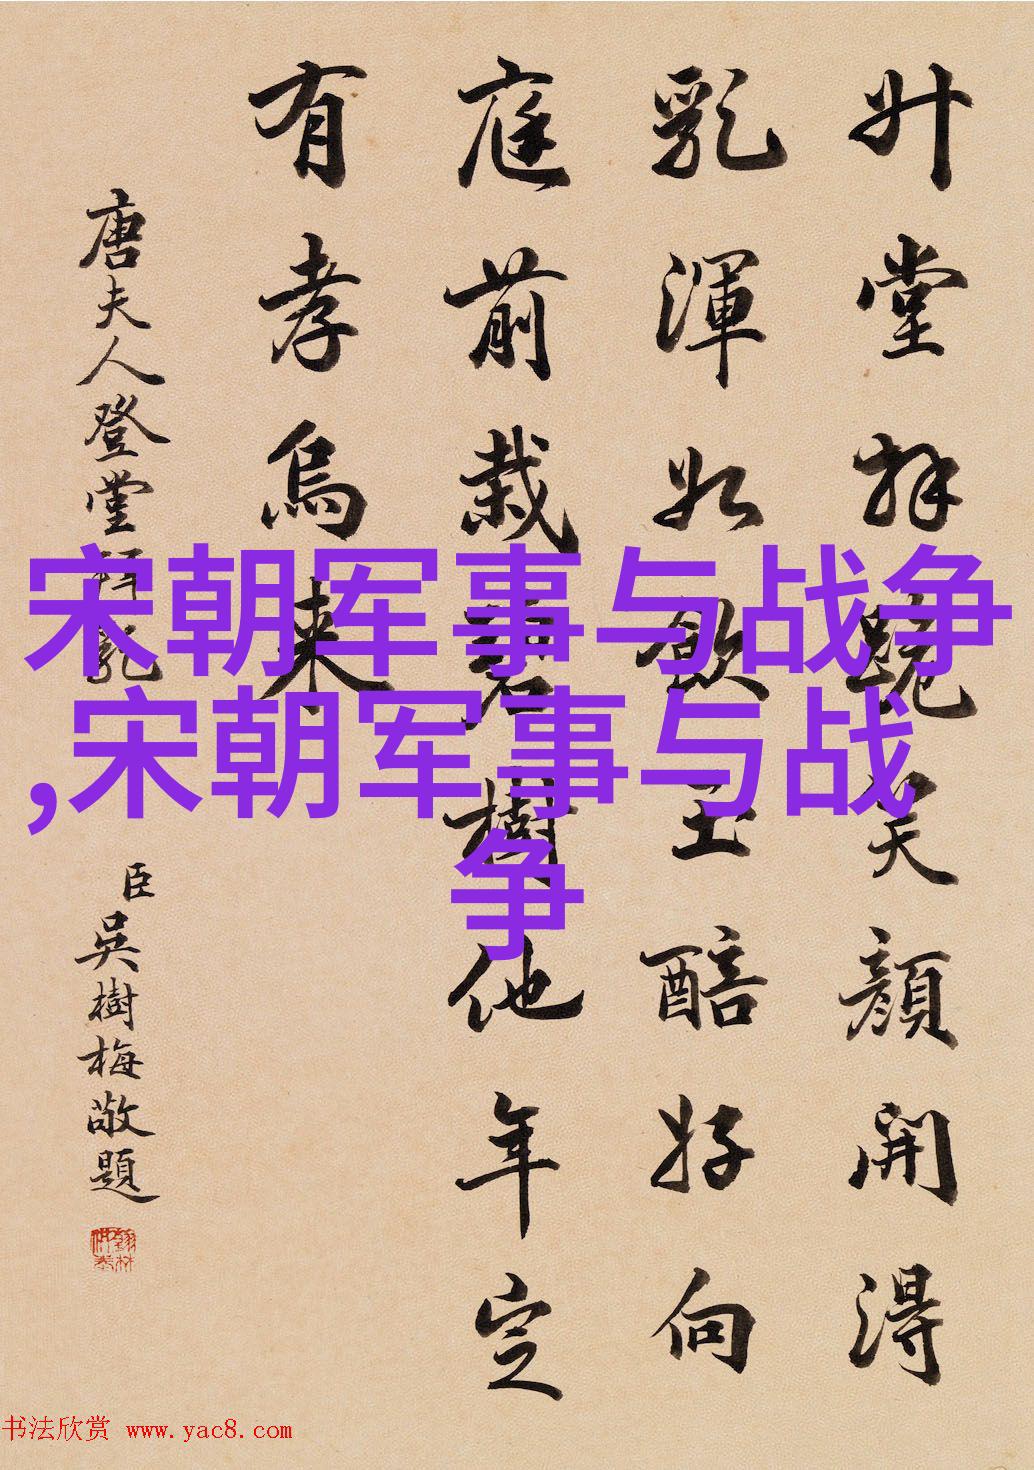 升堂拜跪笑顔開得
乳渾如飲玉醅好向
庭前栽碧樹他年定
有孝烏來
唐夫人登堂拜乳
臣吳樹梅敬題
宋朝军事与战争
,宋朝军事与战
争
书法欣赏 www.yac8.com